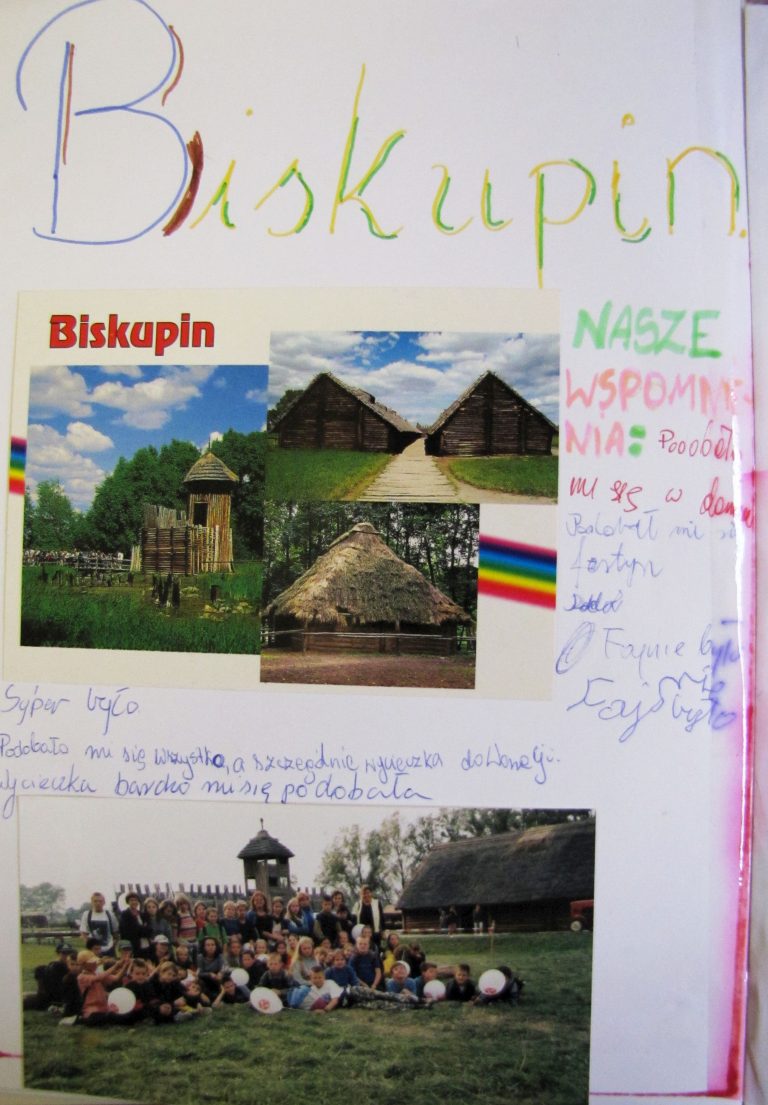 Biskupin
Biskupin
NASZE
WSPOMNIE-
NIA: Podobało
mi się w
Podobał mi się
festyn
Fajnie było
Fajnie
było
Syper było
Podobało mi się wszystko, a szczególnie wycieczka do Wenecji.
Wycieczka bardzo mi się podobała